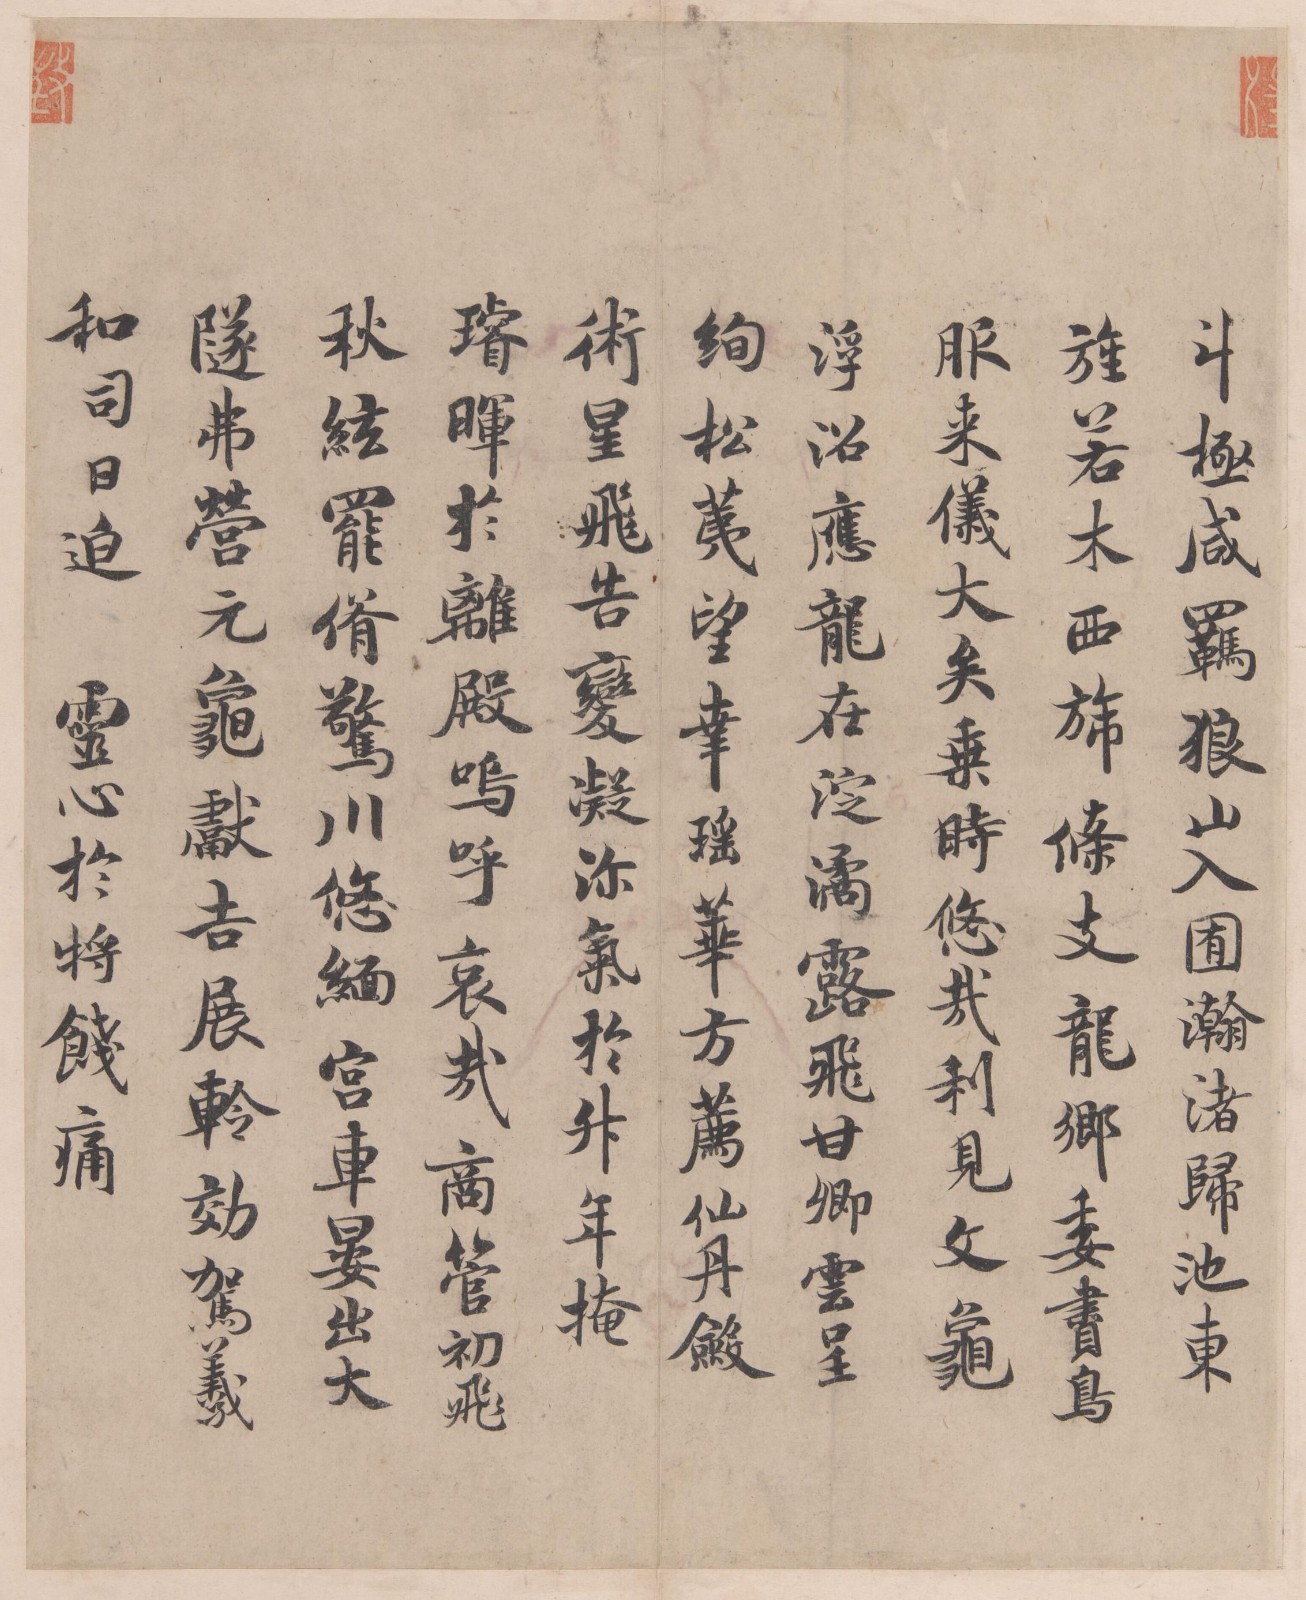 斗極咸羈狼山入囿瀚渚歸池東
旌若木西旆條支龍鄉委書鳥
服来儀大矣乗時悠哉利見文龜
浮沼應龍在淀潏露飛甘卿雲呈
絢松荑望幸瑶華方薦仙丹斂
術星飛告變凝沴氣於升年掩
璿暉於離殿嗚呼哀哉商管初飛
秋絃罷脩驚川悠緬宮車晏出大
隧弗營元龜獻吉展軨効駕羲
和司日迫 靈心於將餞痛